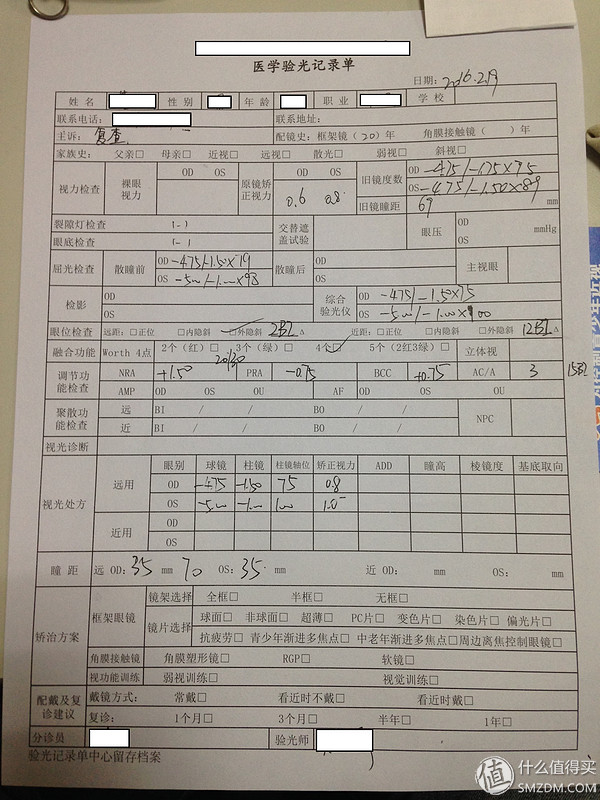 医学验光记录单
日期: 2016.2.19
姓名 性别 年龄 职业 学校
联系电话: 联系地址:
主诉: 复查 配镜史: 框架镜 (20) 年 角膜接触镜 ( ) 年
家族史: 父亲□ 母亲□ 近视□ 远视□ 散光□ 弱视□ 斜视□
视力检查 裸眼视力 OD OS 原镜矫正视力 OD 0.6 OS 0.8 旧镜度数 OD -4.75/-1.75×75
OS -4.75/-1.50×89
旧镜瞳距 69 mm
裂隙灯检查 1-1 交替遮盖试验 眼压 OD mmHg
眼底检查 1-1 OS
屈光检查 散瞳前 OD -4.75/-1.50×79 散瞳后 OD 主视眼
OS -5.00/-1.00×98 OS
检影 OD 综合验光仪 OD -4.75/-1.50×75
OS OS -5.00/-1.00×100
眼位检查 远距: □正位 □内隐斜 □外隐斜 2BI △ 近距: □正位 □内隐斜 □外隐斜 12BI △
融合功能 Worth 4点 2个(红)□ 3个(绿)□ 4个□ 5个(2红3绿)□ 立体视
20/30
调节功能检查 NRA +1.50 PRA -0.75 BCC +0.75 AC/A 3 15BI
AMP OD OS OU AF OD OS OU
聚散功能检查 远 BI / / BO / / NPC
近 BI / / BO / /
视光诊断
视光处方 眼别 球镜 柱镜 柱镜轴位 矫正视力 ADD 瞳高 棱镜度 基底取向
远用 OD -4.75 -1.50 75 0.8
OS -5.00 -1.00 100 1.0
近用 OD
OS
瞳距 远 OD: 35 mm 70 OS: 35 mm 近 OD: mm OS: mm
矫治方案 框架眼镜 镜架选择 全框□ 半框□ 无框□
镜片选择 球面□ 非球面□ 超薄□ PC片□ 变色片□ 染色片□ 偏光片□
抗疲劳□ 青少年渐进多焦点□ 中老年渐进多焦点□ 周边离焦控制眼镜□
角膜接触镜 角膜塑形镜□ RGP□ 软镜□
视功能训练 弱视训练□ 视觉训练□
配戴及复诊建议 戴镜方式: 常戴□ 看近时不戴□ 看近时戴□
复诊: 1个月□ 3个月□ 半年□ 1年□
分诊员 验光师
验光记录单中心留存档案
值 什么值得买
SMZDM.COM